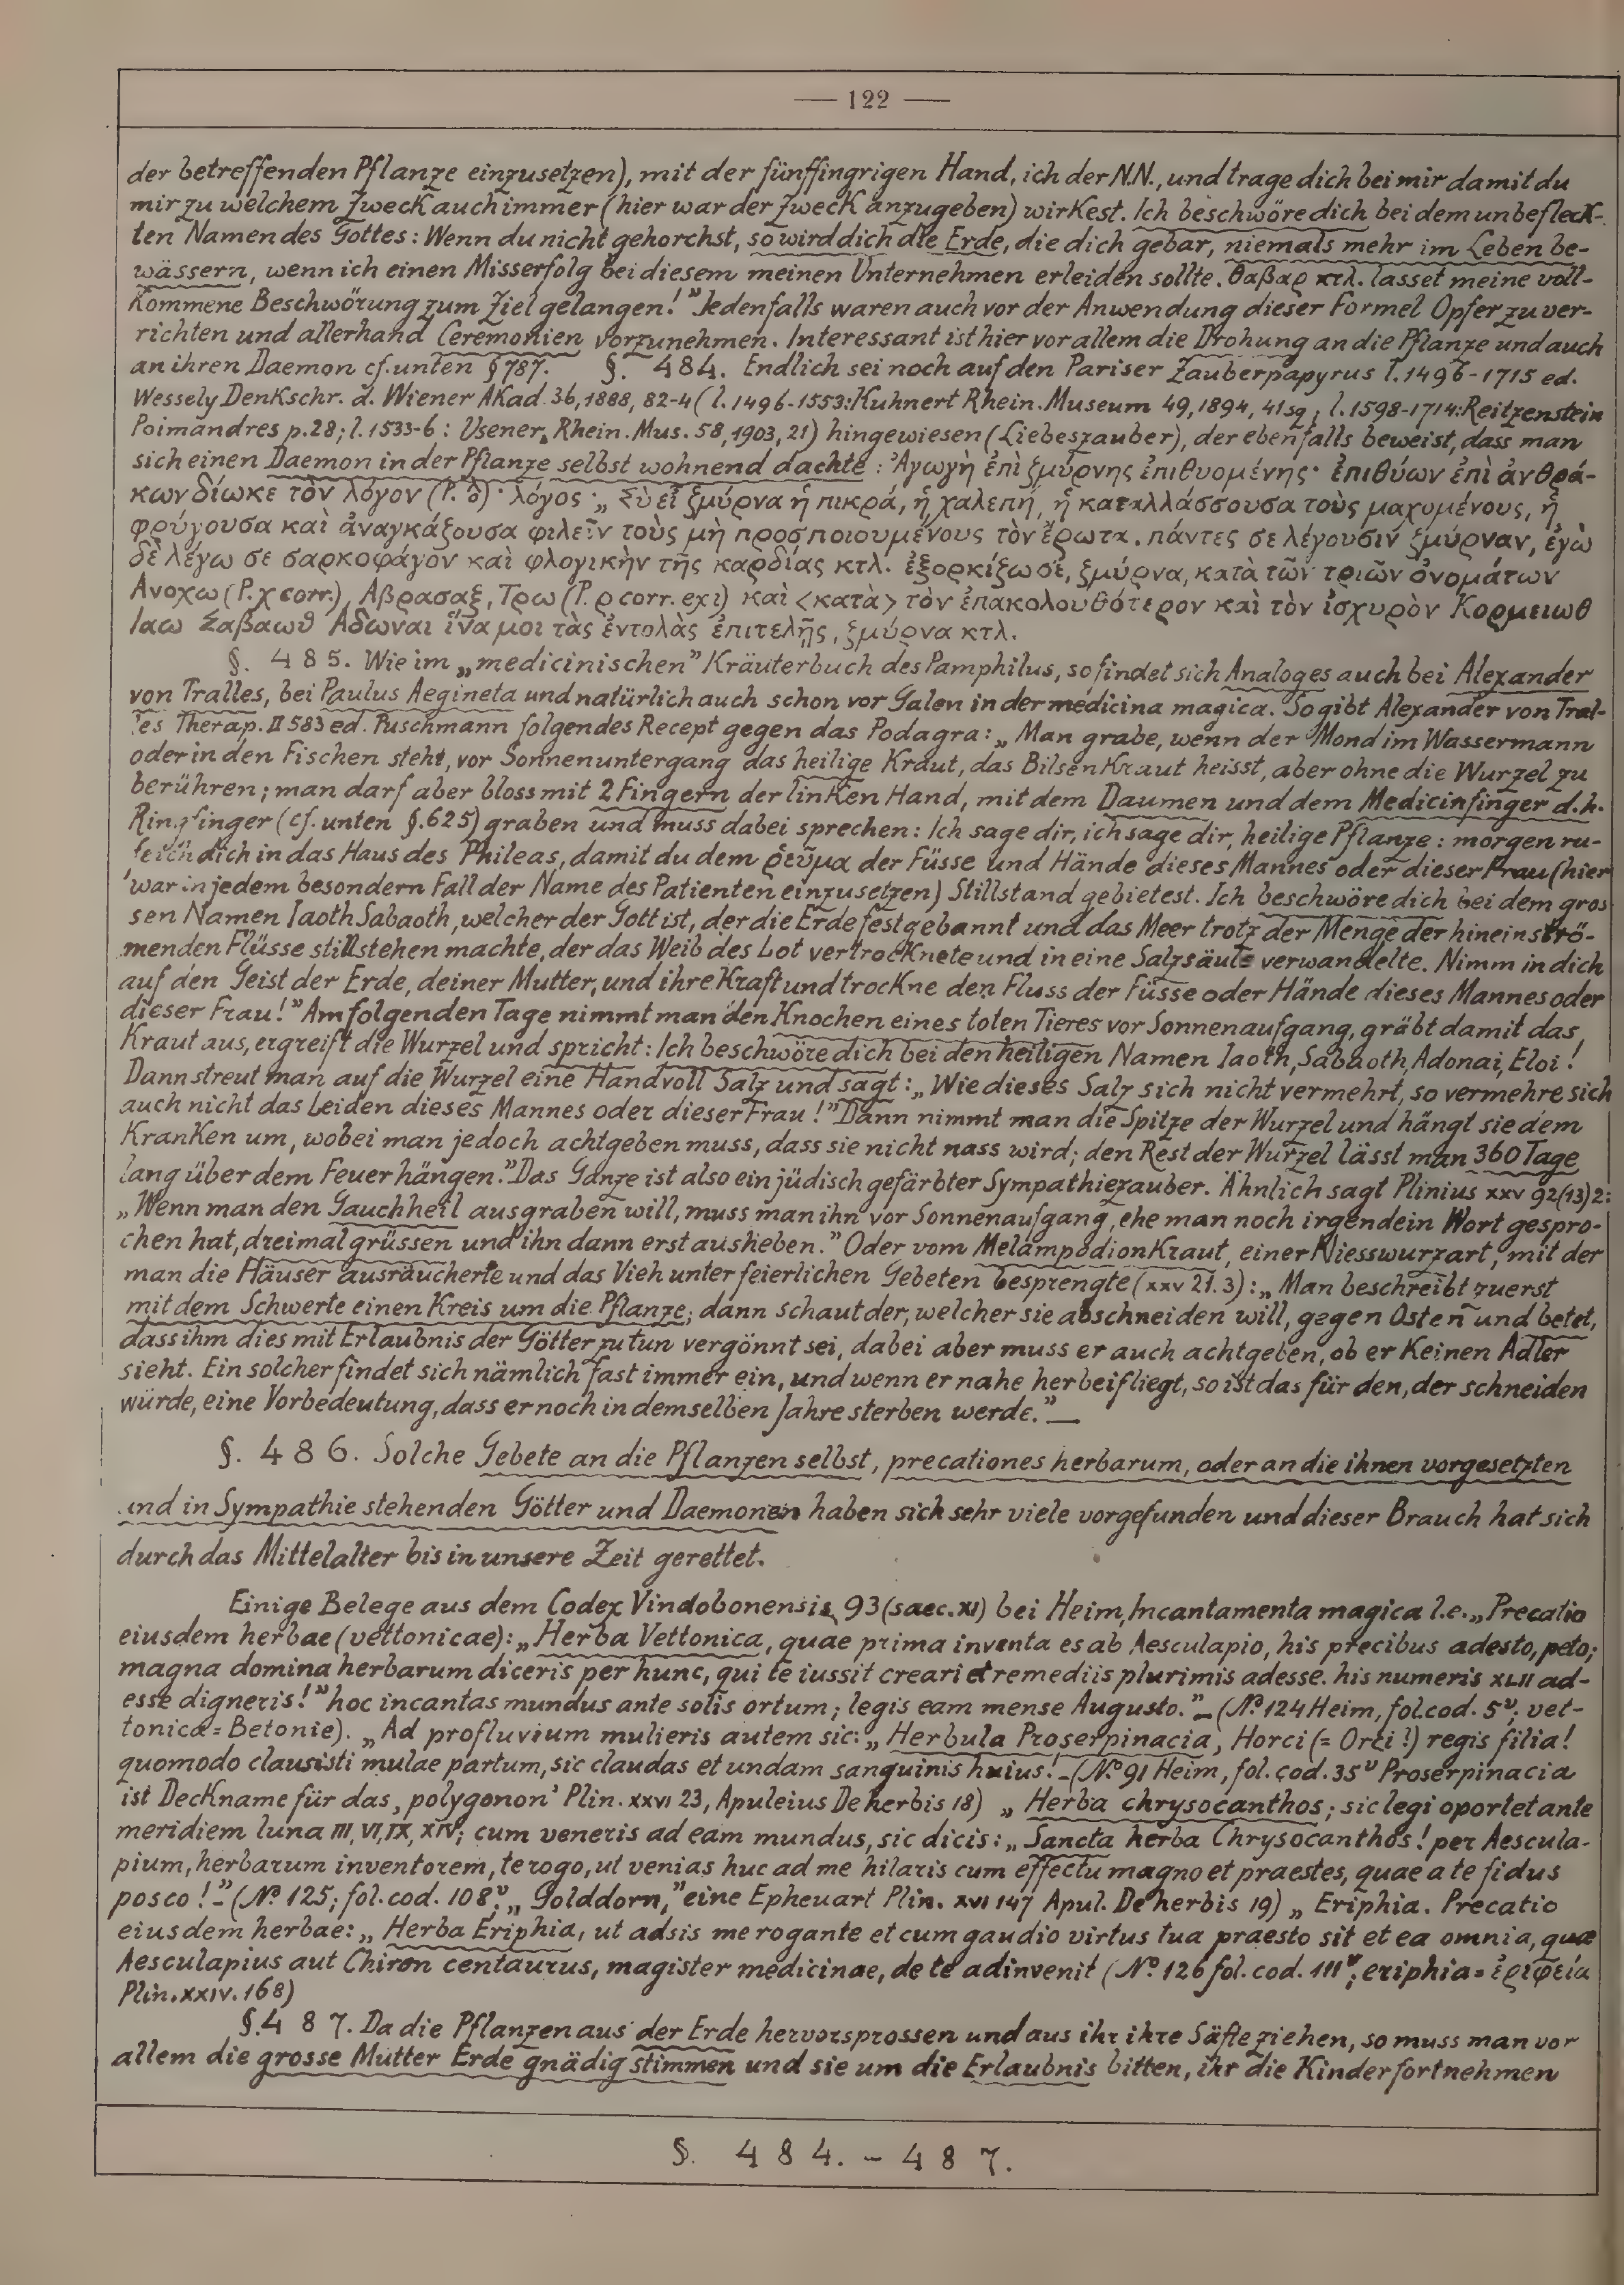 — 122 —
der betreffenden Pflanze einzusetzen), mit der fünffingrigen Hand, ich der N.N., und trage dich bei mir damit du
mir zu welchem Zweck auch immer (hier war der Zweck anzugeben) wirkest. Ich beschwöre dich bei dem unbefleck-
ten Namen des Gottes: Wenn du nicht gehorchst, so wird dich die Erde, die dich gebar, niemals mehr im Leben be-
wässern, wenn ich einen Misserfolg bei diesem meinen Unternehmen erleiden sollte. θαβαρ κτλ. lasset meine voll-
kommene Beschwörung zum Ziel gelangen!" Jedenfalls waren auch vor der Anwendung dieser Formel Opfer zu ver-
richten und allerhand Ceremonien vorzunehmen. Interessant ist hier vor allem die Drohung an die Pflanze und auch
an ihren Daemon cf. unten § 787. §. 484. Endlich sei noch auf den Pariser Zauberpapyrus l. 1496-1715 ed.
Wessely Denkschr. d. Wiener Akad. 36, 1888, 82-4 (l. 1496-1553: Kuhnert Rhein. Museum 49, 1894, 41 sq; l. 1598-1714: Reitzenstein
Poimandres p. 28; l. 1533-6: Usener, Rhein. Mus. 58, 1903, 21) hingewiesen (Liebeszauber), der ebenfalls beweist, dass man
sich einen Daemon in der Pflanze selbst wohnend dachte: Ἀγωγὴ ἐπὶ ζμύρνης ἐπιθυομένης· ἐπιθύων ἐπὶ ἀνθρά-
κων δίωκε τὸν λόγον (P. δ)· λόγος· „Σὺ εἶ ζμύρνα ἡ πικρά, ἡ χαλεπή, ἡ καταλλάσσουσα τοὺς μαχομένους, ἡ
φρύγουσα καὶ ἀναγκάζουσα φιλεῖν τοὺς μὴ προσποιουμένους τὸν ἔρωτα. πάντες σε λέγουσιν ζμύρναν, ἐγὼ
δὲ λέγω σε σαρκοφάγον καὶ φλογικὴν τῆς καρδίας κτλ. ἐξορκίζω σέ, ζμύρνα, κατὰ τῶν τριῶν ὀνομάτων
Ανοχω (P. χ corr.), Αβρασαξ, Τρω (P. ρ corr. ex ι) καὶ <κατὰ> τὸν ἐπακολουθότερον καὶ τὸν ἰσχυρὸν Κορμειωθ
Ιαω Σαβαωθ Ἀδωναι ἵνα μοι τὰς ἐντολὰς ἐπιτελῇς, ζμύρνα κτλ.
§. 485. Wie im „medicinischen" Kräuterbuch des Pamphilus, so findet sich Analoges auch bei Alexander
von Tralles, bei Paulus Aegineta und natürlich auch schon vor Galen in der medicina magica. So gibt Alexander von Tral-
les Therap. II 583 ed. Puschmann folgendes Recept gegen das Podagra: „Man grabe, wenn der Mond im Wassermann
oder in den Fischen steht, vor Sonnenuntergang das heilige Kraut, das Bilsenkraut heisst, aber ohne die Wurzel zu
berühren; man darf aber bloss mit 2 Fingern der linken Hand, mit dem Daumen und dem Medicinfinger d.h.
Ringfinger (cf. unten §. 625) graben und muss dabei sprechen: Ich sage dir, ich sage dir, heilige Pflanze: morgen ru-
fe ich dich in das Haus des Phileas, damit du dem ῥεῦμα der Füsse und Hände dieses Mannes oder dieser Frau (hier
war in jedem besondern Fall der Name des Patienten einzusetzen) Stillstand gebietest. Ich beschwöre dich bei dem gros
sen Namen Iaoth Sabaoth, welcher der Gott ist, der die Erde festgebannt und das Meer trotz der Menge der hineinströ-
menden Flüsse stillstehen machte, der das Weib des Lot vertrocknete und in eine Salzsäule verwandelte. Nimm in dich
auf den Geist der Erde, deiner Mutter, und ihre Kraft und trockne den Fluss der Füsse oder Hände dieses Mannes oder
dieser Frau!" Am folgenden Tage nimmt man den Knochen eines toten Tieres vor Sonnenaufgang, gräbt damit das
Kraut aus, ergreift die Wurzel und spricht: Ich beschwöre dich bei den heiligen Namen Iaoth, Sabaoth, Adonai, Eloi!
Dann streut man auf die Wurzel eine Handvoll Salz und sagt: „Wie dieses Salz sich nicht vermehrt, so vermehre sich
auch nicht das Leiden dieses Mannes oder dieser Frau!" Dann nimmt man die Spitze der Wurzel und hängt sie dem
Kranken um, wobei man jedoch achtgeben muss, dass sie nicht nass wird; den Rest der Wurzel lässt man 360 Tage
lang über dem Feuer hängen." Das Ganze ist also ein jüdisch gefärbter Sympathiezauber. Ähnlich sagt Plinius XXV 92(13)2:
„Wenn man den Gauchheil ausgraben will, muss man ihn vor Sonnenaufgang, ehe man noch irgendein Wort gespro-
chen hat, dreimal grüssen und ihn dann erst ausheben." Oder vom Melampodionkraut, einer Niesswurzart, mit der
man die Häuser ausräucherte und das Vieh unter feierlichen Gebeten besprengte (XXV 21.3): „Man beschreibt zuerst
mit dem Schwerte einen Kreis um die Pflanze; dann schaut der, welcher sie abschneiden will, gegen Osten und betet,
dass ihm dies mit Erlaubnis der Götter zu tun vergönnt sei, dabei aber muss er auch achtgeben, ob er keinen Adler
sieht. Ein solcher findet sich nämlich fast immer ein, und wenn er nahe herbeifliegt, so ist das für den, der schneiden
würde, eine Vorbedeutung, dass er noch in demselben Jahre sterben werde." —
§. 486. Solche Gebete an die Pflanzen selbst, precationes herbarum, oder an die ihnen vorgesetzten
und in Sympathie stehenden Götter und Daemonen haben sich sehr viele vorgefunden und dieser Brauch hat sich
durch das Mittelalter bis in unsere Zeit gerettet.
Einige Belege aus dem Codex Vindobonensis 93 (saec. XI) bei Heim, Incantamenta magica l.e. „Precatio
eiusdem herbae (vettonicae): „Herba Vettonica, quae prima inventa es ab Aesculapio, his precibus adesto, peto;
magna domina herbarum diceris per hunc, qui te iussit creari et remediis plurimis adesse. his numeris XLII ad-
esse digneris!" hoc incantas mundus ante solis ortum; legis eam mense Augusto." — (No 124 Heim, fol. cod. 5v; vet-
tonica = Betonie). „Ad profluvium mulieris autem sic: „Herbula Proserpinacia, Horci (= Orci!) regis filia!
quomodo clausisti mulae partum, sic claudas et undam sanguinis huius! - (No 91 Heim, fol. cod. 35v Proserpinacia
ist Deckname für das ‚polygonon' Plin. XXVI 23, Apuleius De herbis 18) „Herba chrysocanthos; sic legi oportet ante
meridiem luna III, VI, IX, XIV; cum veneris ad eam mundus, sic dicis: „Sancta herba Chrysocanthos! per Aescula-
pium, herbarum inventorem, te rogo, ut venias huc ad me hilaris cum effectu magno et praestes, quae a te fidus
posco!" - (No 125; fol. cod. 108v; „Golddorn," eine Epheuart Plin. XVI 147 Apul. De herbis 19) „Eriphia. Precatio
eiusdem herbae: „Herba Eriphia, ut adsis me rogante et cum gaudio virtus tua praesto sit et ea omnia, quae
Aesculapius aut Chiron centaurus, magister medicinae, de te adinvenit (No 126 fol. cod. 111v; eriphia = ἐριφεία
Plin. XXIV. 168)
§. 487. Da die Pflanzen aus der Erde hervorsprossen und aus ihr ihre Säfte ziehen, so muss man vor
allem die grosse Mutter Erde gnädig stimmen und sie um die Erlaubnis bitten, ihr die Kinder fortnehmen
§. 484. - 487.